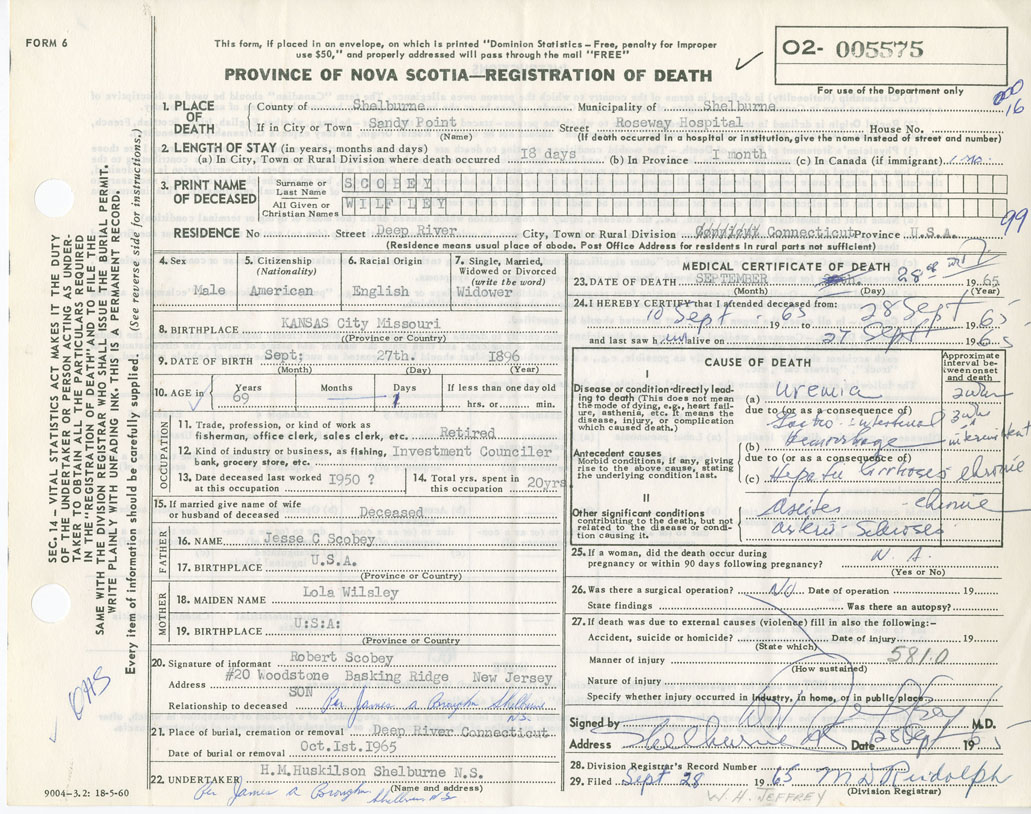 FORM 6
This form, if placed in an envelope, on which is printed "Dominion Statistics – Free, penalty for improper
use $50," and properly addressed will pass through the mail "FREE"
PROVINCE OF NOVA SCOTIA—REGISTRATION OF DEATH
02- 005575
For use of the Department only
16
1. PLACE OF DEATH
County of Shelburne Municipality of Shelburne
If in City or Town Sandy Point Street Roseway Hospital House No.
(Name) (If death occurred in a hospital or institution, give the name instead of street and number)
2. LENGTH OF STAY (in years, months and days)
(a) In City, Town or Rural Division where death occurred 18 days (b) In Province 1 month (c) In Canada (if immigrant) 1 mo.
3. PRINT NAME OF DECEASED
Surname or Last Name SCOBEY
All Given or Christian Names WILFLEY
99
RESIDENCE No Street Deep River City, Town or Rural Division Connecticut Province U.S.A.
(Residence means usual place of abode. Post Office Address for residents in rural parts not sufficient)
4. Sex
Male
5. Citizenship
(Nationality)
American
6. Racial Origin
English
7. Single, Married,
Widowed or Divorced
(write the word)
Widower
8. BIRTHPLACE KANSAS City Missouri
(Province or Country)
9. DATE OF BIRTH Sept: 27th. 1896
(Month) (Day) (Year)
10. AGE in
Years 69
Months
Days 1
If less than one day old
hrs. or min.
OCCUPATION
11. Trade, profession, or kind of work as
fisherman, office clerk, sales clerk, etc. Retired
12. Kind of industry or business, as fishing,
bank, grocery store, etc. Investment Counciler
13. Date deceased last worked
at this occupation 1950 ?
14. Total yrs. spent in
this occupation 20yrs
15. If married give name of wife
or husband of deceased Deceased
FATHER
16. NAME Jesse C Scobey
17. BIRTHPLACE U.S.A.
(Province or Country)
MOTHER
18. MAIDEN NAME Lola Wilsley
19. BIRTHPLACE U:S:A:
(Province or Country)
20. Signature of informant Robert Scobey
Address #20 Woodstone Basking Ridge New Jersey
Relationship to deceased SON
Per James A Brougham Shelburne
N.S.
21. Place of burial, cremation or removal Deep River Connecticut
Date of burial or removal Oct.1st.1965
22. UNDERTAKER H.M.Huskilson Shelburne N.S.
(Name and address)
Per James A Brougham
Shelburne N.S.
9004–3.2: 18-5-60
MEDICAL CERTIFICATE OF DEATH
23. DATE OF DEATH SEPTEMBER 28th 1965
(Month) (Day) (Year)
24. I HEREBY CERTIFY that I attended deceased from:
10 Sept 1965 to 28 Sept 1965
and last saw him alive on 27 Sept 1965
CAUSE OF DEATH
Approximate
interval be-
tween onset
and death
I
Disease or condition directly lead-
ing to death (This does not mean
the mode of dying, e.g., heart fail-
ure, asthenia, etc. It means the
disease, injury, or complication
which caused death.)
(a) uremia
due to (or as a consequence of)
Gastro-intestinal
(b) hemorrhage intermittent
Antecedent causes
Morbid conditions, if any, giving
rise to the above cause, stating
the underlying condition last.
due to (or as a consequence of)
(c) Hepatic Cirrhosis chronic
II
Other significant conditions
contributing to the death, but not
related to the disease or condi-
tion causing it.
ascites - chronic
arterio-sclerosis
25. If a woman, did the death occur during
pregnancy or within 90 days following pregnancy? N. A.
(Yes or No)
26. Was there a surgical operation? No Date of operation 19
State findings Was there an autopsy?
27. If death was due to external causes (violence) fill in also the following:–
Accident, suicide or homicide? Date of injury 19
(State which)
Manner of injury 581.0
(How sustained)
Nature of injury
Specify whether injury occurred in industry, in home, or in public place
Signed by W H Jeffrey M.D.
Address Shelburne NS Date 28 Sept 1965
28. Division Registrar's Record Number
29. Filed Sept 28 1965 M D Rudolph
(Division Registrar)
W. H. JEFFREY
SEC. 14 – VITAL STATISTICS ACT MAKES IT THE DUTY
OF THE UNDERTAKER OR PERSON ACTING AS UNDER-
TAKER TO OBTAIN ALL THE PARTICULARS REQUIRED
IN THE "REGISTRATION OF DEATH" AND TO FILE THE
SAME WITH THE DIVISION REGISTRAR WHO SHALL ISSUE THE BURIAL PERMIT.
WRITE PLAINLY WITH UNFADING INK. THIS IS A PERMANENT RECORD.
Every item of information should be carefully supplied. (See reverse side for instructions.)